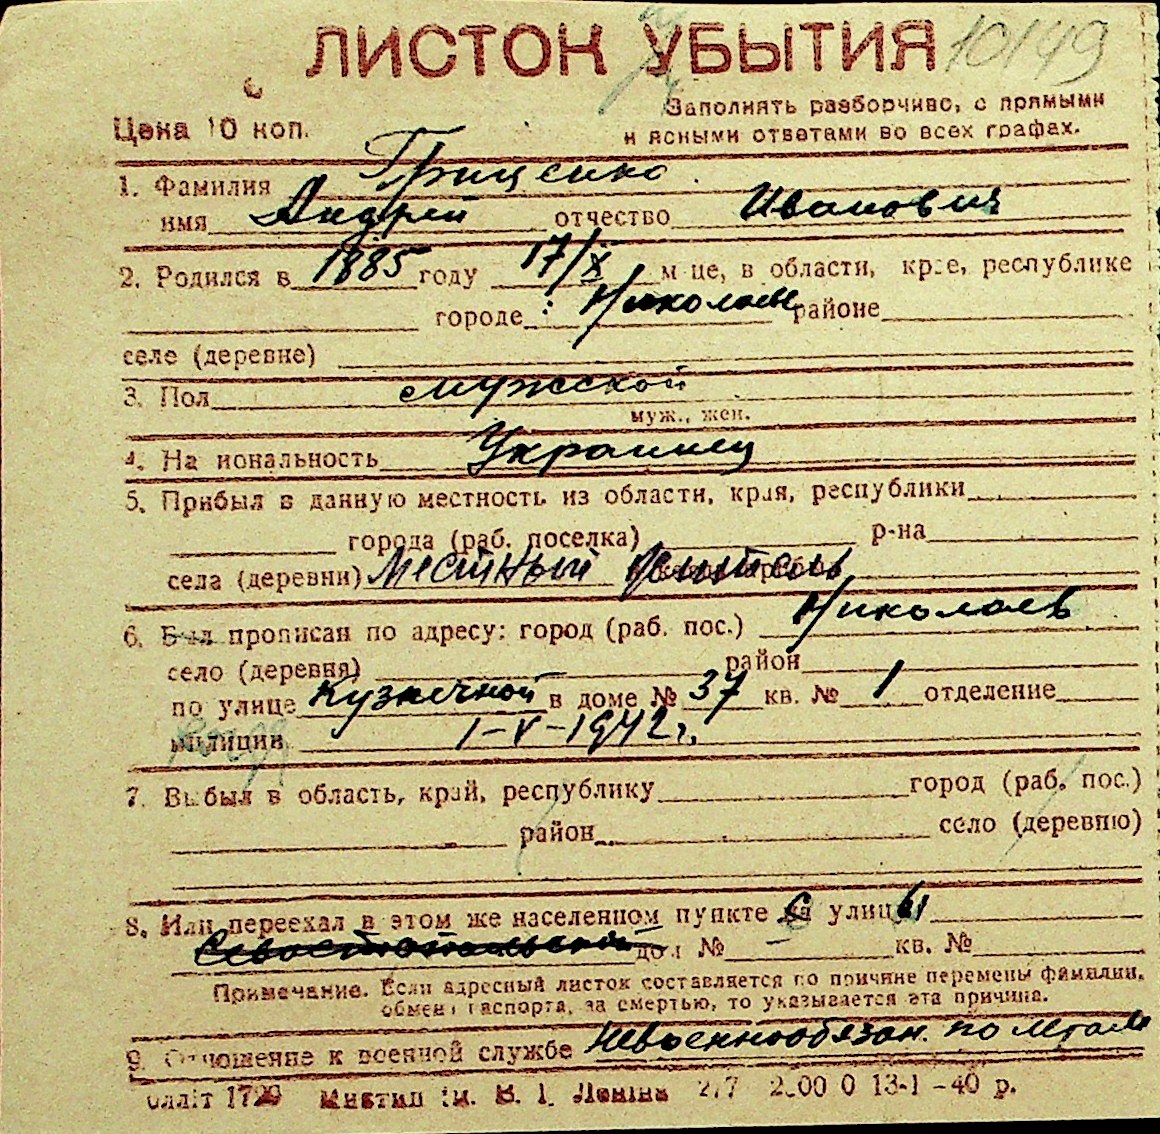 ЛИСТОК УБЫТИЯ 10149
Цена 10 коп.
Заполнять разборчиво, с прямыми
и ясными ответами во всех графах.
1. Фамилия Гриценко
имя Андрей отчество Иванович
2. Родился в 1885 году 17/X м-це, в области, крае, республике
городе: Николаев районе
селе (деревне)
3. Пол мужской
муж., жен.
4. Национальность Украинец
5. Прибыл в данную местность из области, края, республики
города (раб. поселка) р-на
села (деревни) Местный житель
6. Был прописан по адресу: город (раб. пос.) Николаев
село (деревня) район
по улице Кузнечной в доме № 37 кв. № 1 отделение
милиции 1-V-1942 г.
7. Выбыл в область, край, республику город (раб. пос.)
район село (деревню)
8. Или переехал в этом же населенном пункте с улицы
Севастопольской дом № – кв. №
Примечание. Если адресный листок составляется по причине перемены фамилии,
обмена паспорта, за смертью, то указывается эта причина.
9. Отношение к военной службе Невоеннообязан. по летам
1799 Миктип ім. В. І. Леніна 13-1-40 р.